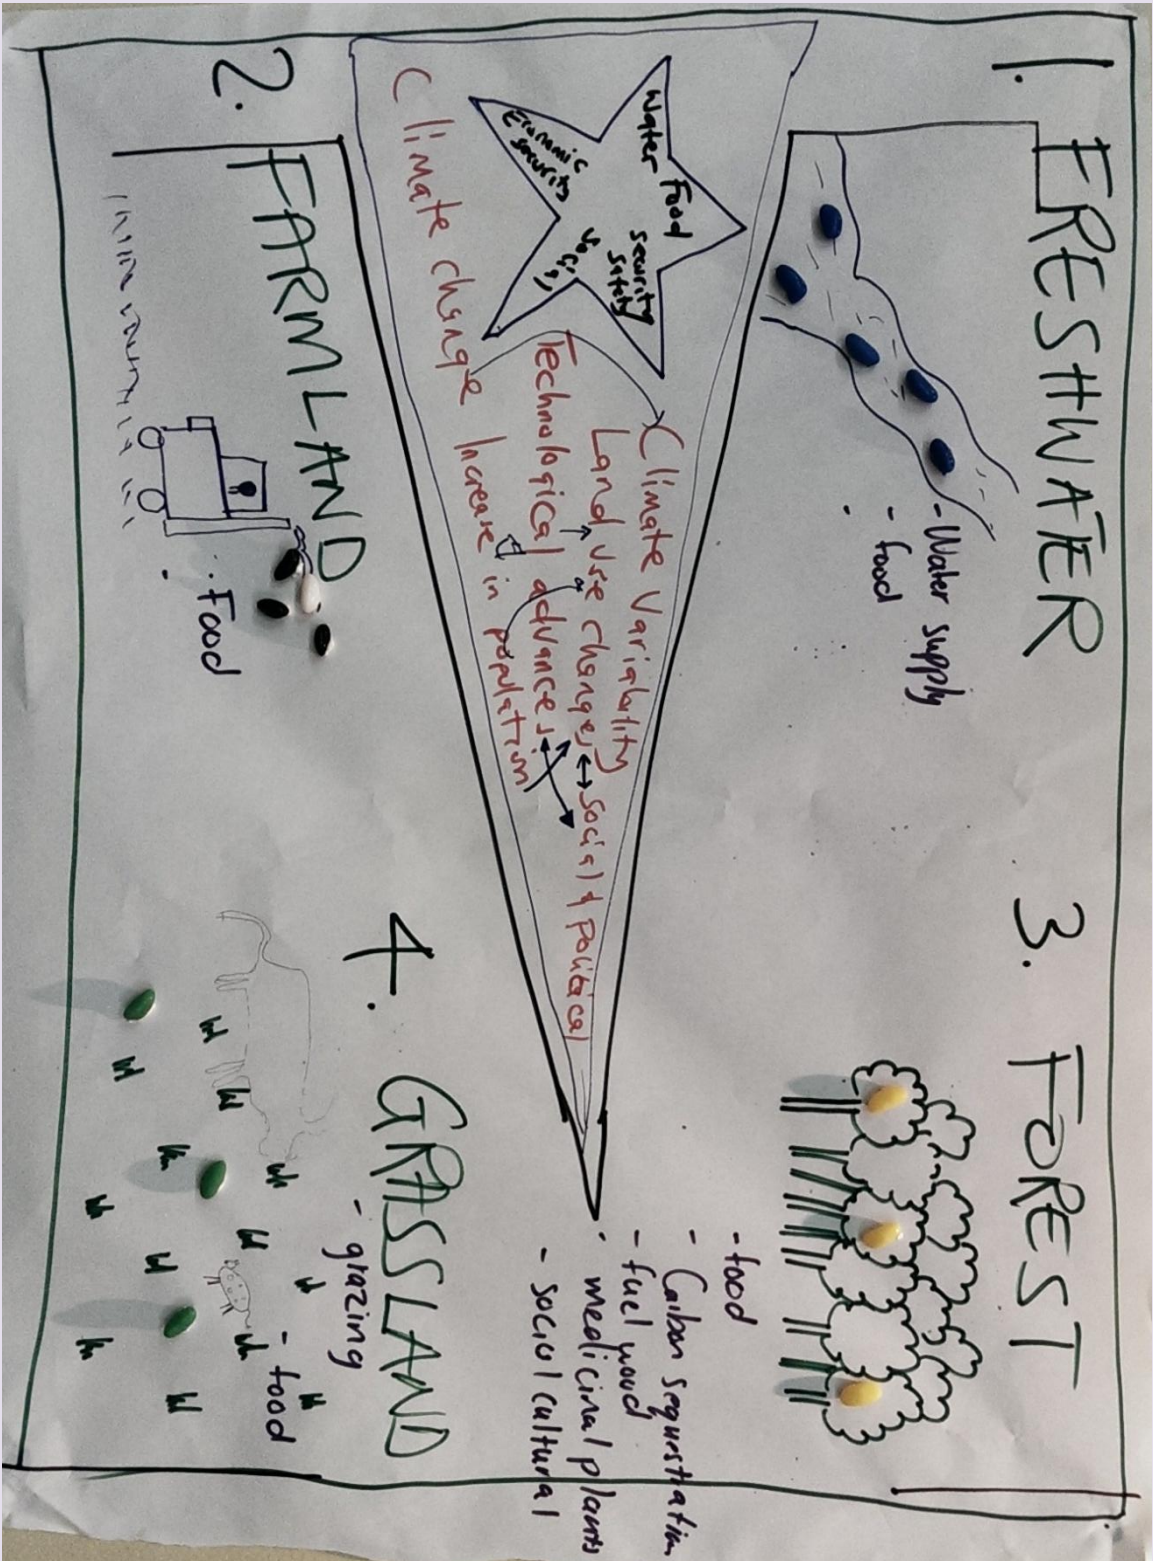 1. FRESHWATER
- Water supply
- food
3. FOREST
- food
- Carbon sequestration
- fuel wood
- medicinal plants
- sociocultural
Water Food
security
safety
Economic
security
Climate Variability
Land use changes ↔ social & political
Technological advances
Climate change Increase in population
2. FARMLAND
. Food
4. GRASSLAND
- grazing
- food